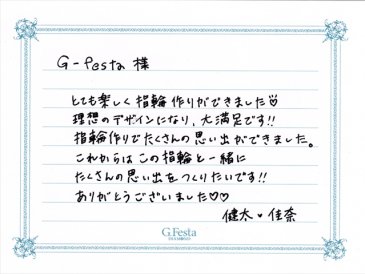 G-festa 様
とても楽しく指輪作りができました♡
理想のデザインになり、大満足です!!
指輪作りでたくさんの思い出ができました。
これからはこの指輪と一緒に
たくさんの思い出をつくりたいです!!
ありがとうございました♡♡
健太・佳奈
G.Festa
DIAMOND